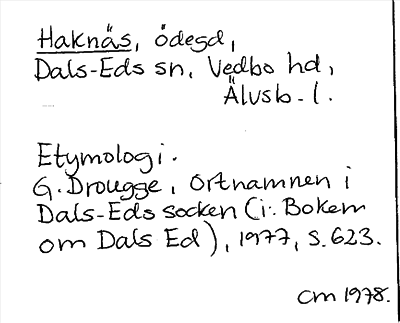 Haknäs, ödegd,
Dals-Eds sn, Vedbo hd,
Älvsb. l.
Etymologi.
G. Drougge, Ortnamnen i
Dals-Eds socken (i: Boken
om Dals Ed), 1977, s. 623.
CM 1978.